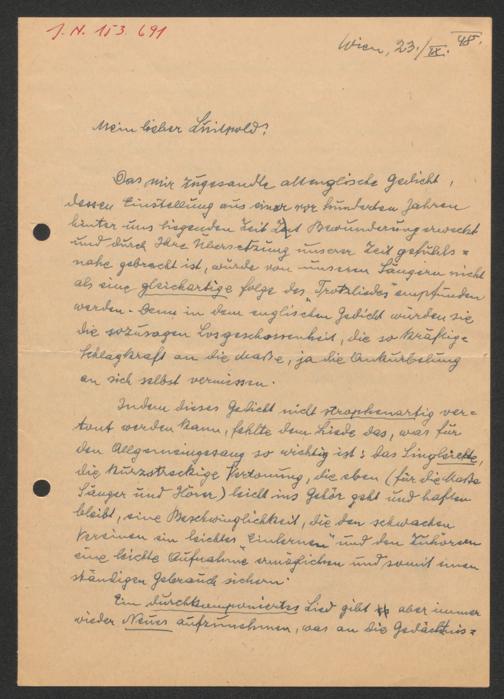 J. N. 153.691
Wien, 23./IX. 48.
Mein lieber Luitpold!
Das mir zugesandte altenglische Gedicht,
dessen Einstellung aus einer vor hunderten Jahren
hinter uns liegenden Zeit Bewunderung erweckt
und durch Ihre Übersetzung unserer Zeit gefühls=
nahe gebracht ist, würde von unseren Sängern nicht
als eine gleichartige Folge des "Trotzliedes" empfunden
werden. Denn in dem englischen Gedicht würden sie
die sozusagen Losgeschossenheit, die so kräftige
Schlagkraft an die Maße, ja die Ankurbelung
an sich selbst vermissen.
Indem dieses Gedicht nicht strophenartig ver=
tont werden kann, fehlte dem Liede das, was für
den Allgemeingesang so wichtig ist: das Singleichte,
die kurzstreckige Vertonung, die eben (für die Maße
Sänger und Hörer) leicht ins Gehör geht und haften
bleibt, eine Beschwinglichkeit, die den schwachen
Vereinen ein leichtes "Einlernen" und den Zuhörern
eine leichte "Aufnahme" ermöglichen und somit einen
ständigen Gebrauch sichern.
Ein durchkomponiertes Lied gibt aber immer
wieder Neues aufzunehmen, was an die Gedächtnis=